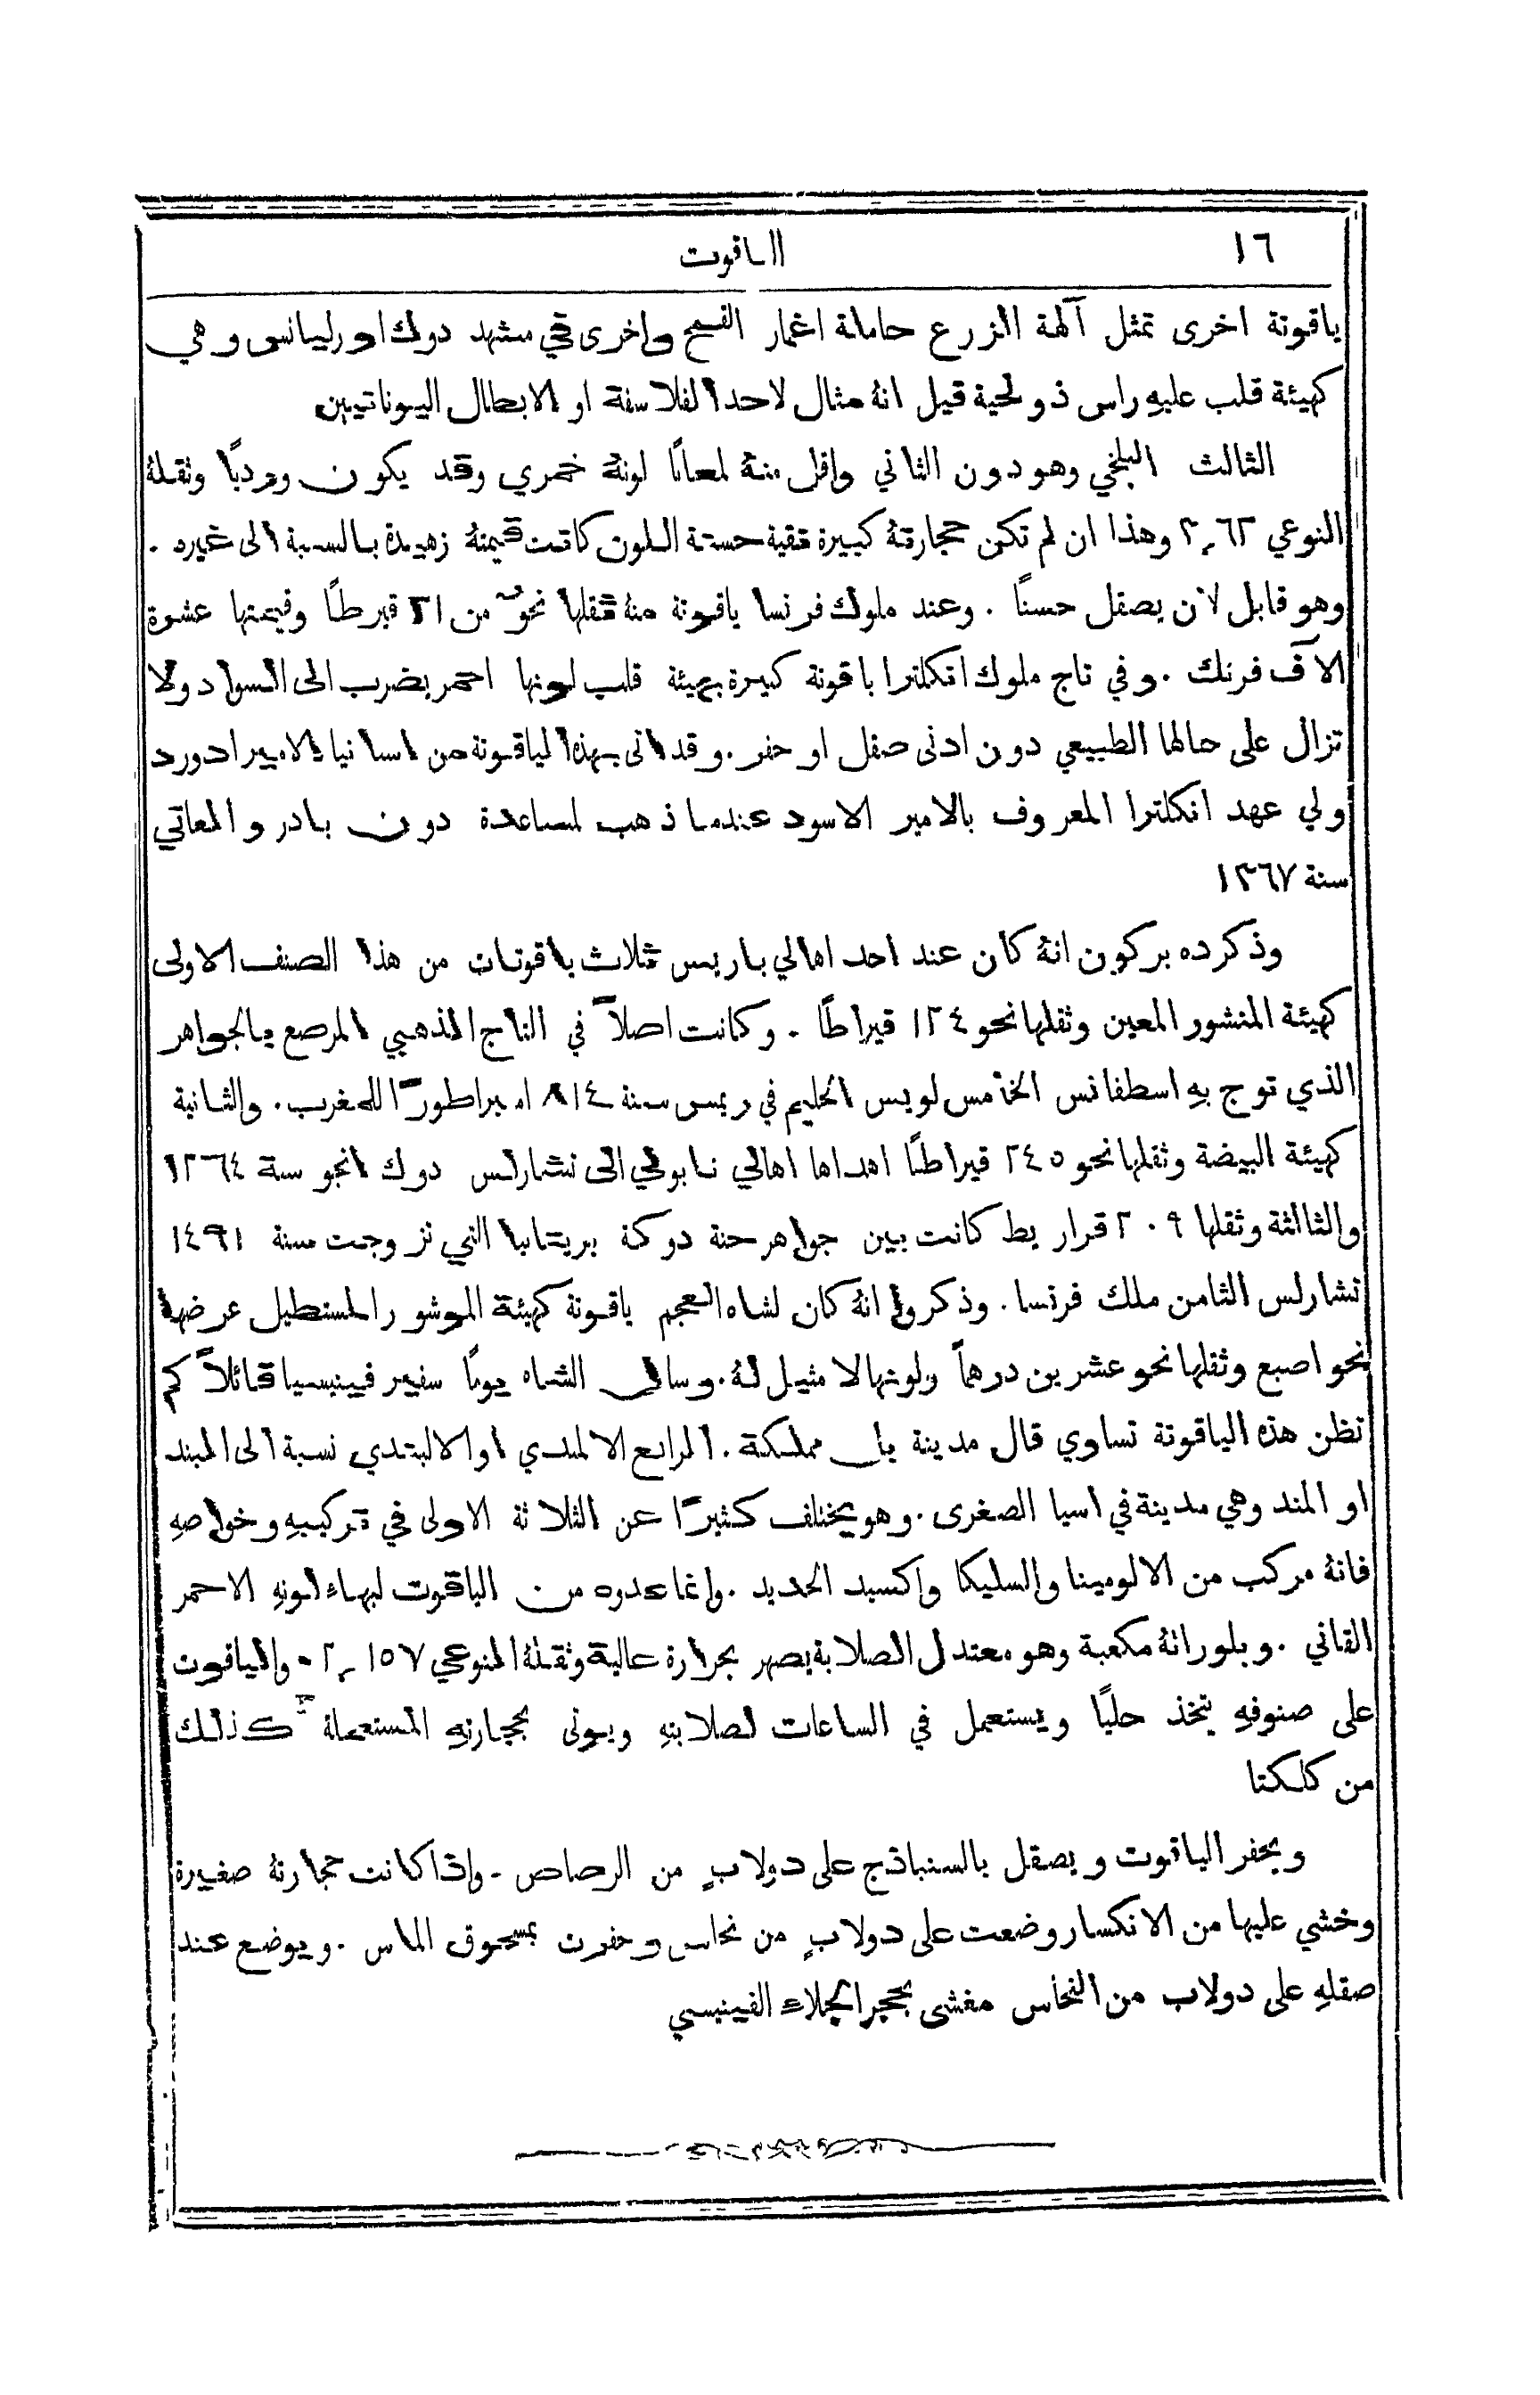 ١٦ الياقوت
ياقوتة اخرى تمثل آلهة الزرع حاملة اغمار القمح واخرى في مشهد دوك اورليانس وهي
كهيئة قلب عليهِ راس ذو لحية قيل انهُ مثال لاحد الفلاسفة او الابطال اليونانيين
الثالث البلخي وهو دون الثاني واقل منهُ لمعانًا لونهُ خمري وقد يكون ورديًا وثقلهُ
النوعي ٣٫٦٢ وهذا ان لم تكن حجارتهُ كبيرة نقية حسنة اللون كانت قيمتهُ زهيدة بالنسبة الى غيره .
وهو قابل لان يصقل حسنًا . وعند ملوك فرنسا ياقوتة منهُ ثقلها نحوٌ من ٢١ قيرطًا وقيمتها عشرة
الاف فرنك . وفي تاج ملوك انكلترا ياقوتة كبيرة بهيئة قلب لونها احمر يضرب الى السواد ولا
تزال على حالها الطبيعي دون ادنى صقل او حفر . وقد اتى بهذه الياقوتة من اسبانيا الامير ادورد
ولي عهد انكلترا المعروف بالامير الاسود عندما ذهب لمساعدة دون بادرو العاتي
سنة ١٣٦٧
وذكر ده بركون انهُ كان عند احد اهالي باريس ثلاث ياقوتات من هذا الصنف الاولى
كهيئة المنشور المعين وثقلها نحو ١٢٤ قيراطًا . وكانت اصلاً في التاج الذهبي المرصع بالجواهر
الذي توج بهِ اسطفانس الخامس لويس الحليم في ريمس سنة ٨١٤ امبراطورًا للمغرب . والثانية
كهيئة البيضة وثقلها نحو ٢٤٥ قيراطًا اهداها اهالي نابولي الى تشارلس دوك انجو سنة ١٢٦٤
والثالثة وثقلها ٢٠٩ قراريط كانت بين جواهر حنة دوكة بريتانيا التي تزوجت سنة ١٤٩١
تشارلس الثامن ملك فرنسا . وذكروا انهُ كان لشاه العجم ياقوتة كهيئة الموشور المستطيل عرضها
نحو اصبع وثقلها نحو عشرين درهماً ولونها لا مثيل لهُ . وسال الشاه يومًا سفير فينيسيا قائلاً كم
تظن هذه الياقوتة تساوي قال مدينة بل مملكة . الرابع الالمندي او الالبندي نسبة الى البند
او المند وهي مدينة في اسيا الصغرى . وهو يختلف كثيرًا عن الثلاثة الاولى في تركيبهِ وخواصهِ
فانهُ مركب من الالومينا والسليكا واكسيد الحديد . وانما عدوه من الياقوت لبهاء لونهِ الاحمر
القاني . وبلوراتهُ مكعبة وهو معتدل الصلابة يصهر بحرارة عالية وثقلهُ النوعي ٢٫١٥٧ . والياقوت
على صنوفهِ يتخذ حليًا ويستعمل في الساعات لصلابتهِ ويوتى بحجارتهِ المستعملة كذلك
من كلكتا
ويحفر الياقوت ويصقل بالسنباذج على دولابٍ من الرصاص . واذا كانت حجارتهُ صغيرة
وخشي عليها من الانكسار وضعت على دولابٍ من نحاس وحفرت بمسحوق الماس . ويوضع عند
صقلهِ على دولاب من النحاس مغشى بحجر الجلاء الفينيسي